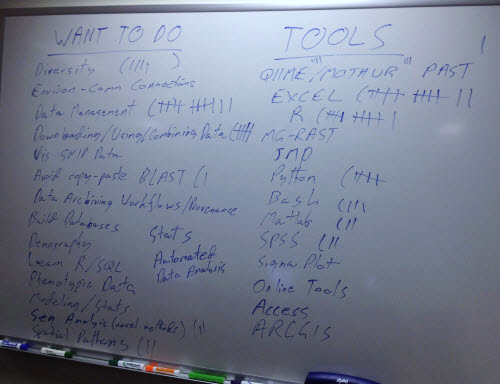 WANT TO DO
Diversity (||||  )
Environ-Comm Connections
Data Management (|||| |||| ||
Downloading/Using/Combining Data (||||
Vis SNP Data
Avoid copy-paste BLAST (|
Data Archiving Workflows/Provenance
Build Databases
Stats
Demography
Learn R/SQL
Automated
Data Analysis
Phenotypic Data
Modeling/Stats
Seq Analysis (novel methods) ||
Spatial Patterns (||
TOOLS
QIIME/MOTHUR PAST
EXCEL (|||| |||| ||
R (||| |||| |
MG-RAST
JMP
Python (||||
Bash (|||
Matlab (||
SPSS (||
Sigma Plot
Online Tools
Access
ARCGIS